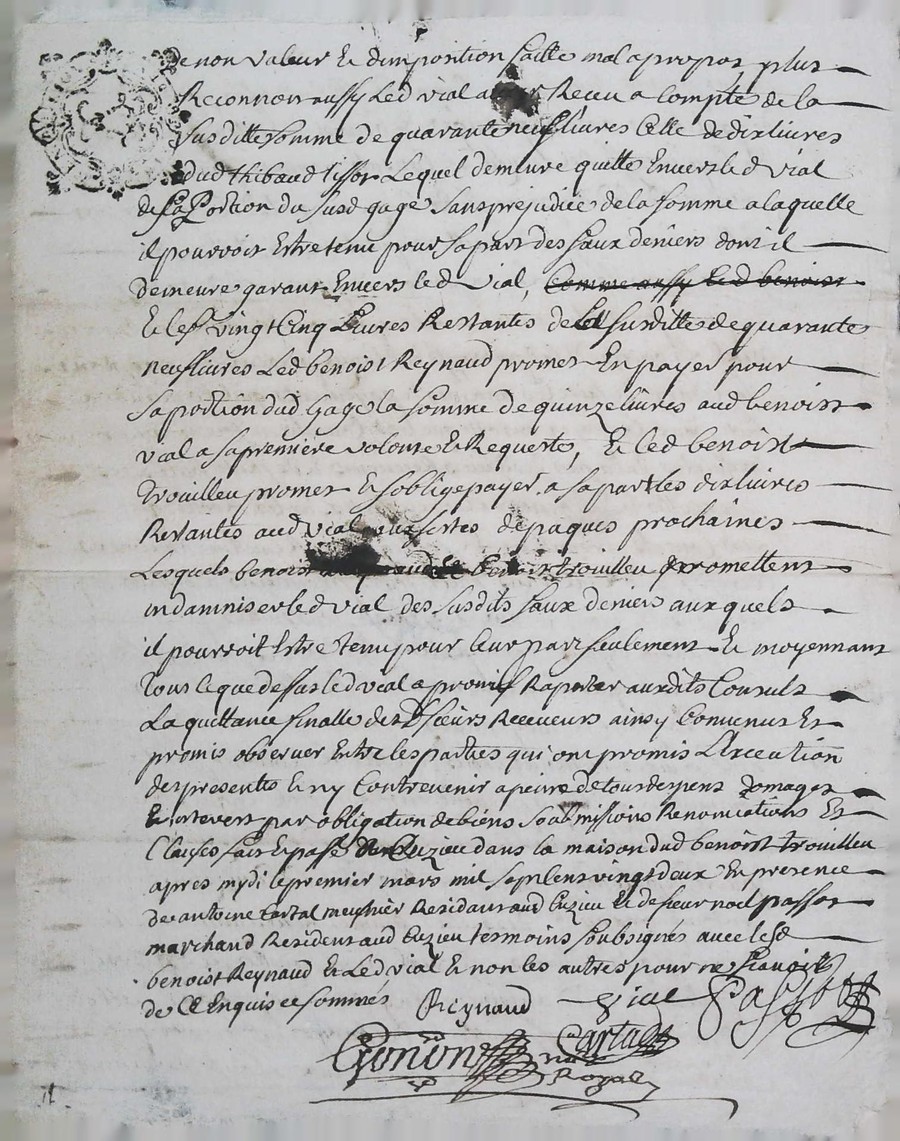 de non valeur Et dimposition faitte mal apropos plus
Reconnoit aussy Led vial avoir Receu a Compte de la
susditte somme de quarante neuf livres Celle de dix livres
dud thibaud tissot Lequel demeure quitte Envers led vial
de sa Portion du susd gage sans prejudice de la somme a laquelle
il pourroit Estre tenu pour sa part des faux deniers dont il
demeure garant Envers led Vial, Comme aussy led benoist
Et les vingt Cinq Livres Restantes de la susditte de quarante
neuf livres Led benoist Reynaud promet En payer pour
sa portion dud Gage la somme de quinze livres aud benoist
vial a sa premiere volonte Et Requeste, Et led benoist
trouilleu promet Et soblige payer a sa part les dix livres
Restantes aud vial aux festes de paques prochaines
Lesquels benoist benoist trouilleu promettent
indamniser led vial des susdits faux deniers auxquels
il pourroit Estre tenu pour leur part seulement Et moyennant
tous le que dessus led vial a promis Raporter ausdits Consuls
La quittance finalle des Sieurs Receveurs ainsy Convenus Et
promis observer Entre les parties qui ont promis L'Execution
des presentes Et ny Contrevenir a peine de tous despens domages
Et interests par obligation de biens soubmissions Renonciations Et
Clauses fait Et passé Cuzieu dans la maison dud benoist trouilleu
apres mydi le premier mars mil sept cens vingt deux En presence
de antoine Cartal meusnier Residant aud Cuzieu Et de sieur noel passot
marchand Resident aud Cuzieu tesmoins soubsignés avec led
benoist Reynaud Et Led vial Et non les autres pour ne scavoir
de Ce Enquis et sommés
Reynaud vial Passot
Gonon Cartal
not Royal